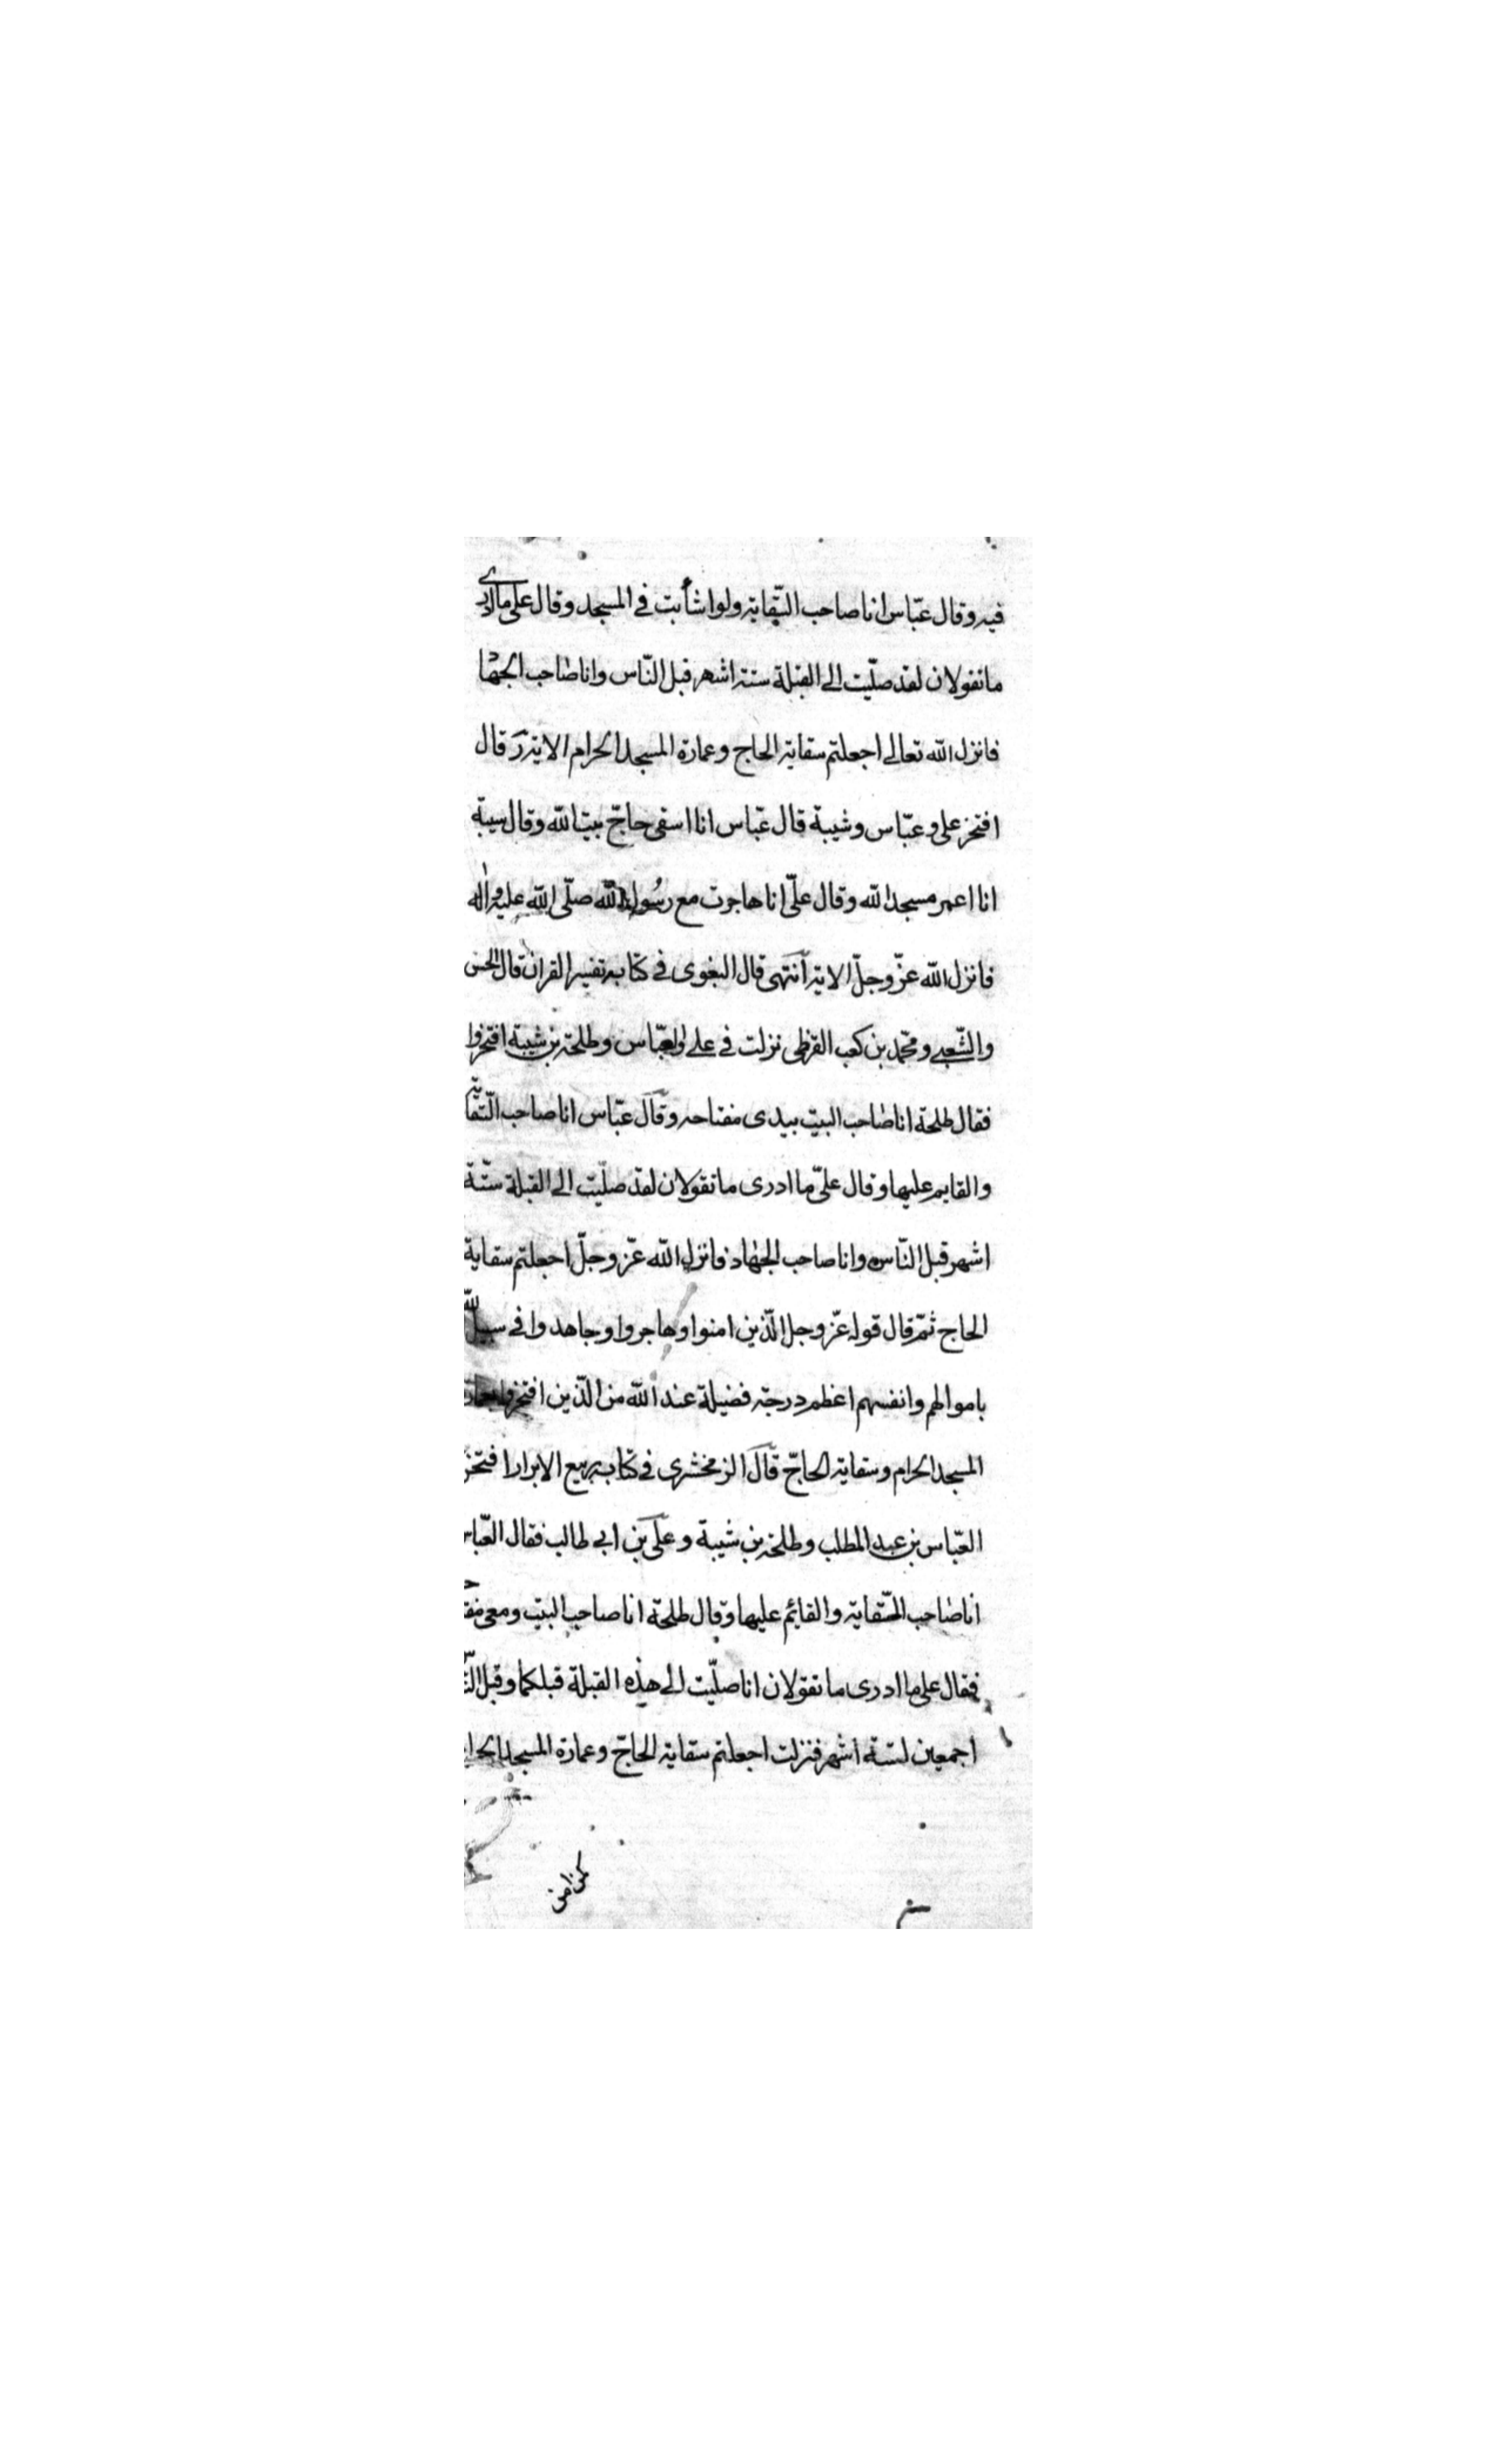 فيه وقال عبّاس انا صاحب السّقاية ولو اشأ بتّ في المسجد وقال علي ما ادرى
ما تقولان لقد صلّيت الى القبلة ستة اشهر قبل النّاس وانا صاحب الجهاد
فانزل الله تعالى اجعلتم سقاية الحاج وعمارة المسجد الحرام الاية قال
افتخر علي وعبّاس وشيبة قال عبّاس انا اسقى حاجّ بيت الله وقال شيبة
انا اعمر مسجد الله وقال عليّ انا هاجرت مع رسول الله صلّى الله عليه واله
فانزل الله عزّ وجلّ الاية انتهى قال البغوى في كتابه تفسير القران قال الحسن
والشّعبي ومحمّد بن كعب القرظى نزلت في علي والعبّاس وطلحة بن شيبة افتخروا
فقال طلحة انا صاحب البيت بيدى مفتاحه وقال عبّاس انا صاحب السّقاية
والقايم عليها وقال عليّ ما ادرى ما تقولان لقد صلّيت الى القبلة ستّة
اشهر قبل النّاس وانا صاحب الجهاد فانزل الله عزّ وجلّ اجعلتم سقاية
الحاج ثمّ قال قوله عزّ وجل الّذين امنوا وهاجروا وجاهدوا في سبيل الله
باموالهم وانفسهم اعظم درجة فضيلة عند الله من الّذين افتخروا بعمارة
المسجد الحرام وسقاية الحاجّ قال الزمخشرى في كتاب ربيع الابرار افتخر
العبّاس بن عبد المطلب وطلحة بن شيبة وعلي بن ابي طالب فقال العبّاس
انا صاحب السّقاية والقائم عليها وقال طلحة انا صاحب البيت ومعى
فقال علي ما ادرى ما تقولان انا صلّيت الى هذه القبلة قبلكما وقبل
اجمعين لستة اشهر فنزلت اجعلتم سقاية الحاجّ وعمارة المسجد الحرا
كمن امن